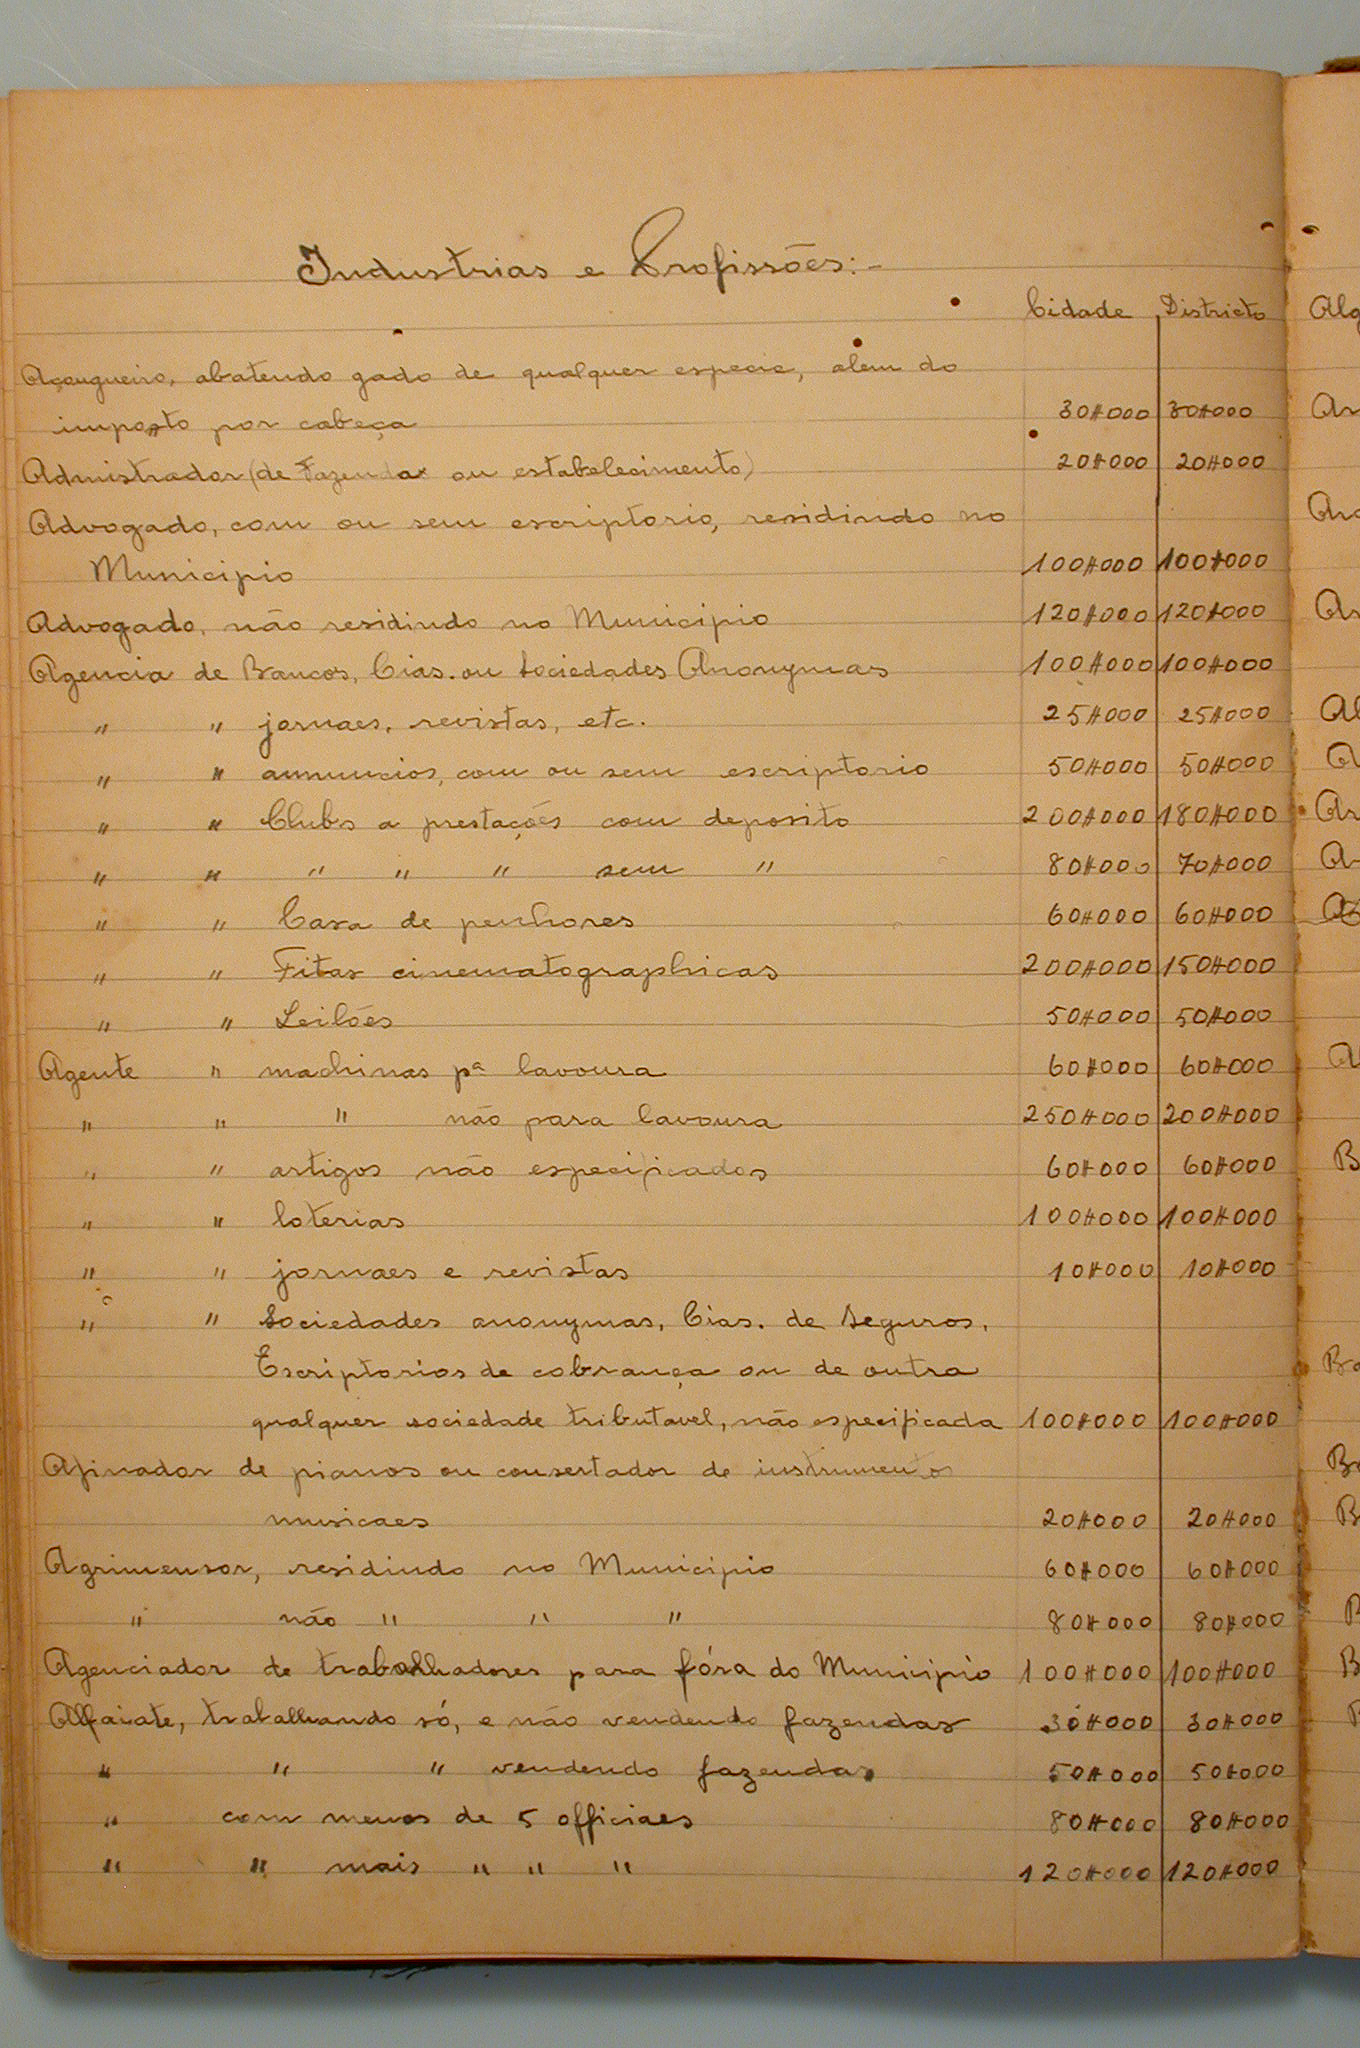 Industrias e Profissões:-
Cidade Districto
Açougueiro, abatendo gado de qualquer especie, alem do
imposto por cabeça 30#000 30#000
Admistrador (de Fazenda ou estabelecimento) 20#000 20#000
Advogado, com ou sem escriptorio, residindo no
Municipio 100#000 100#000
Advogado, não residindo no Municipio 120#000 120#000
Agencia de Bancos, Cias. ou Sociedades Anonymas 100#000 100#000
" " jornaes, revistas, etc. 25#000 25#000
" " annuncios, com ou sem escriptorio 50#000 50#000
" " Clubs a prestações com deposito 200#000 180#000
" " " " " sem " 80#000 70#000
" " Casa de penhores 60#000 60#000
" " Fitas cinematographicas 200#000 150#000
" " Leilões 50#000 50#000
Agente " machinas pª lavoura 60#000 60#000
" " " não para lavoura 250#000 200#000
" " artigos não especificados 60#000 60#000
" " loterias 100#000 100#000
" " jornaes e revistas 10#000 10#000
" " Sociedades anonymas, Cias. de Seguros,
Escriptorios de cobrança ou de outra
qualquer sociedade tributavel, não especificada 100#000 100#000
Afinador de pianos ou consertador de instrumentos
musicaes 20#000 20#000
Agrimensor, residindo no Municipio 60#000 60#000
" não " " " 80#000 80#000
Agenciador de trabalhadores para fóra do Municipio 100#000 100#000
Alfaiate, trabalhando só, e não vendendo fazendas 30#000 30#000
" " " vendendo fazendas 50#000 50#000
" com menos de 5 officiaes 80#000 80#000
" " mais " " " 120#000 120#000